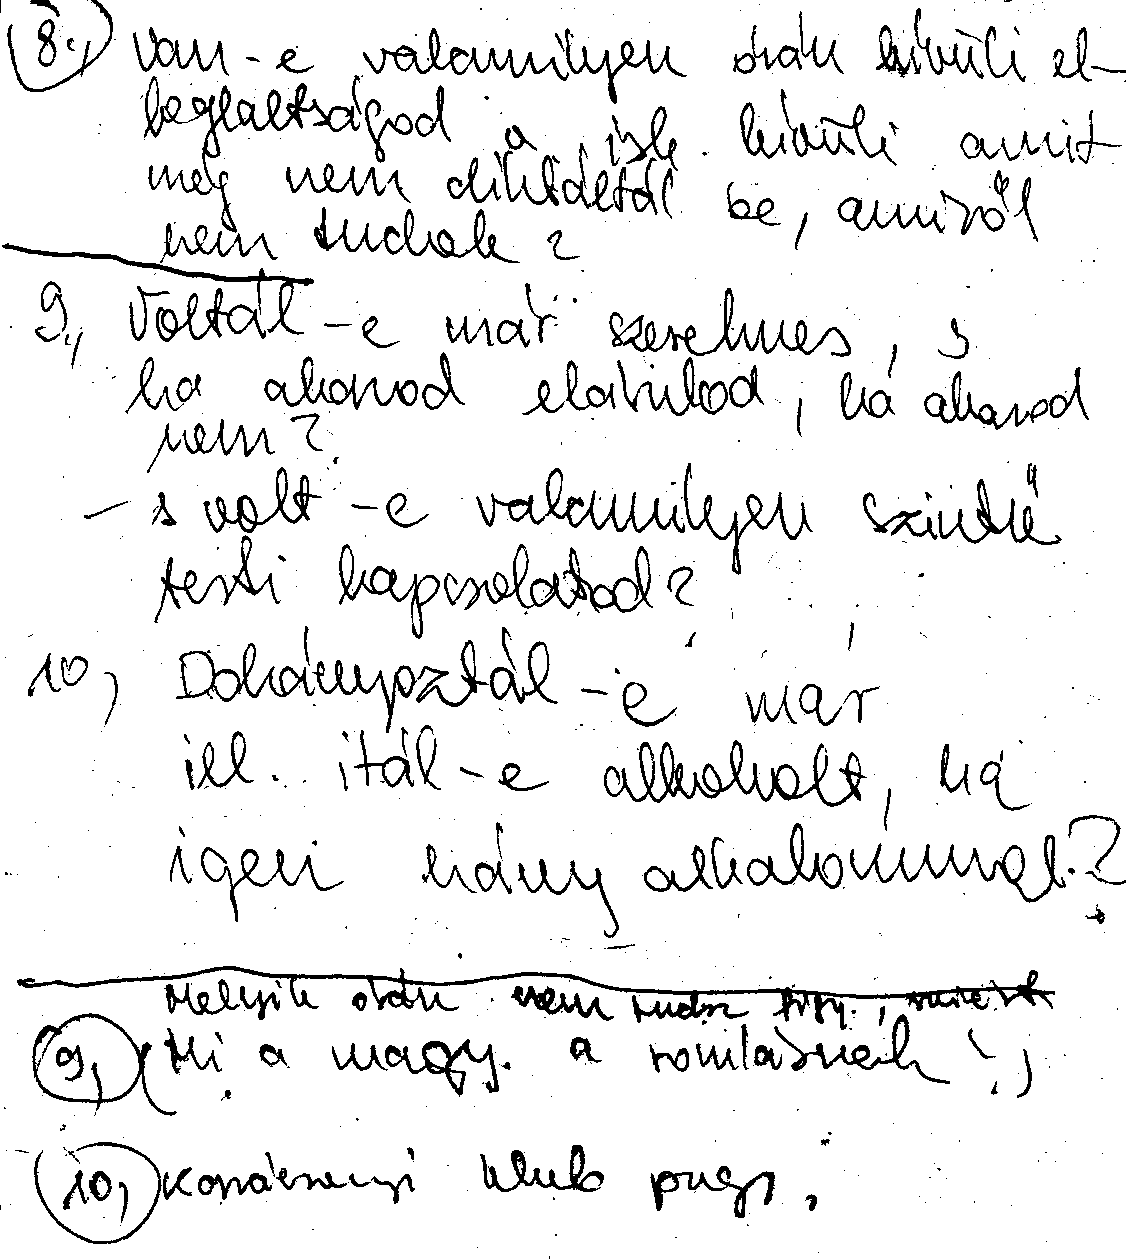 8., Van-e valamilyen órán kívüli el-
foglaltságod a isk. kívüli amit
még nem diktáltál be, amiről
nem tudok?
9., Voltál-e már szerelmes, s
ha akarod elárulod, ha akarod
nem?
- s volt-e valamilyen szintű
testi kapcsolatod?
10, Dohányoztál-e már
ill. ittál-e alkoholt, ha
igen hány alkalommal?
Melyik órán nem tudsz figy., miért
9, (Mi a magy. a romlásnak?)
10, Karácsonyi klub progr.